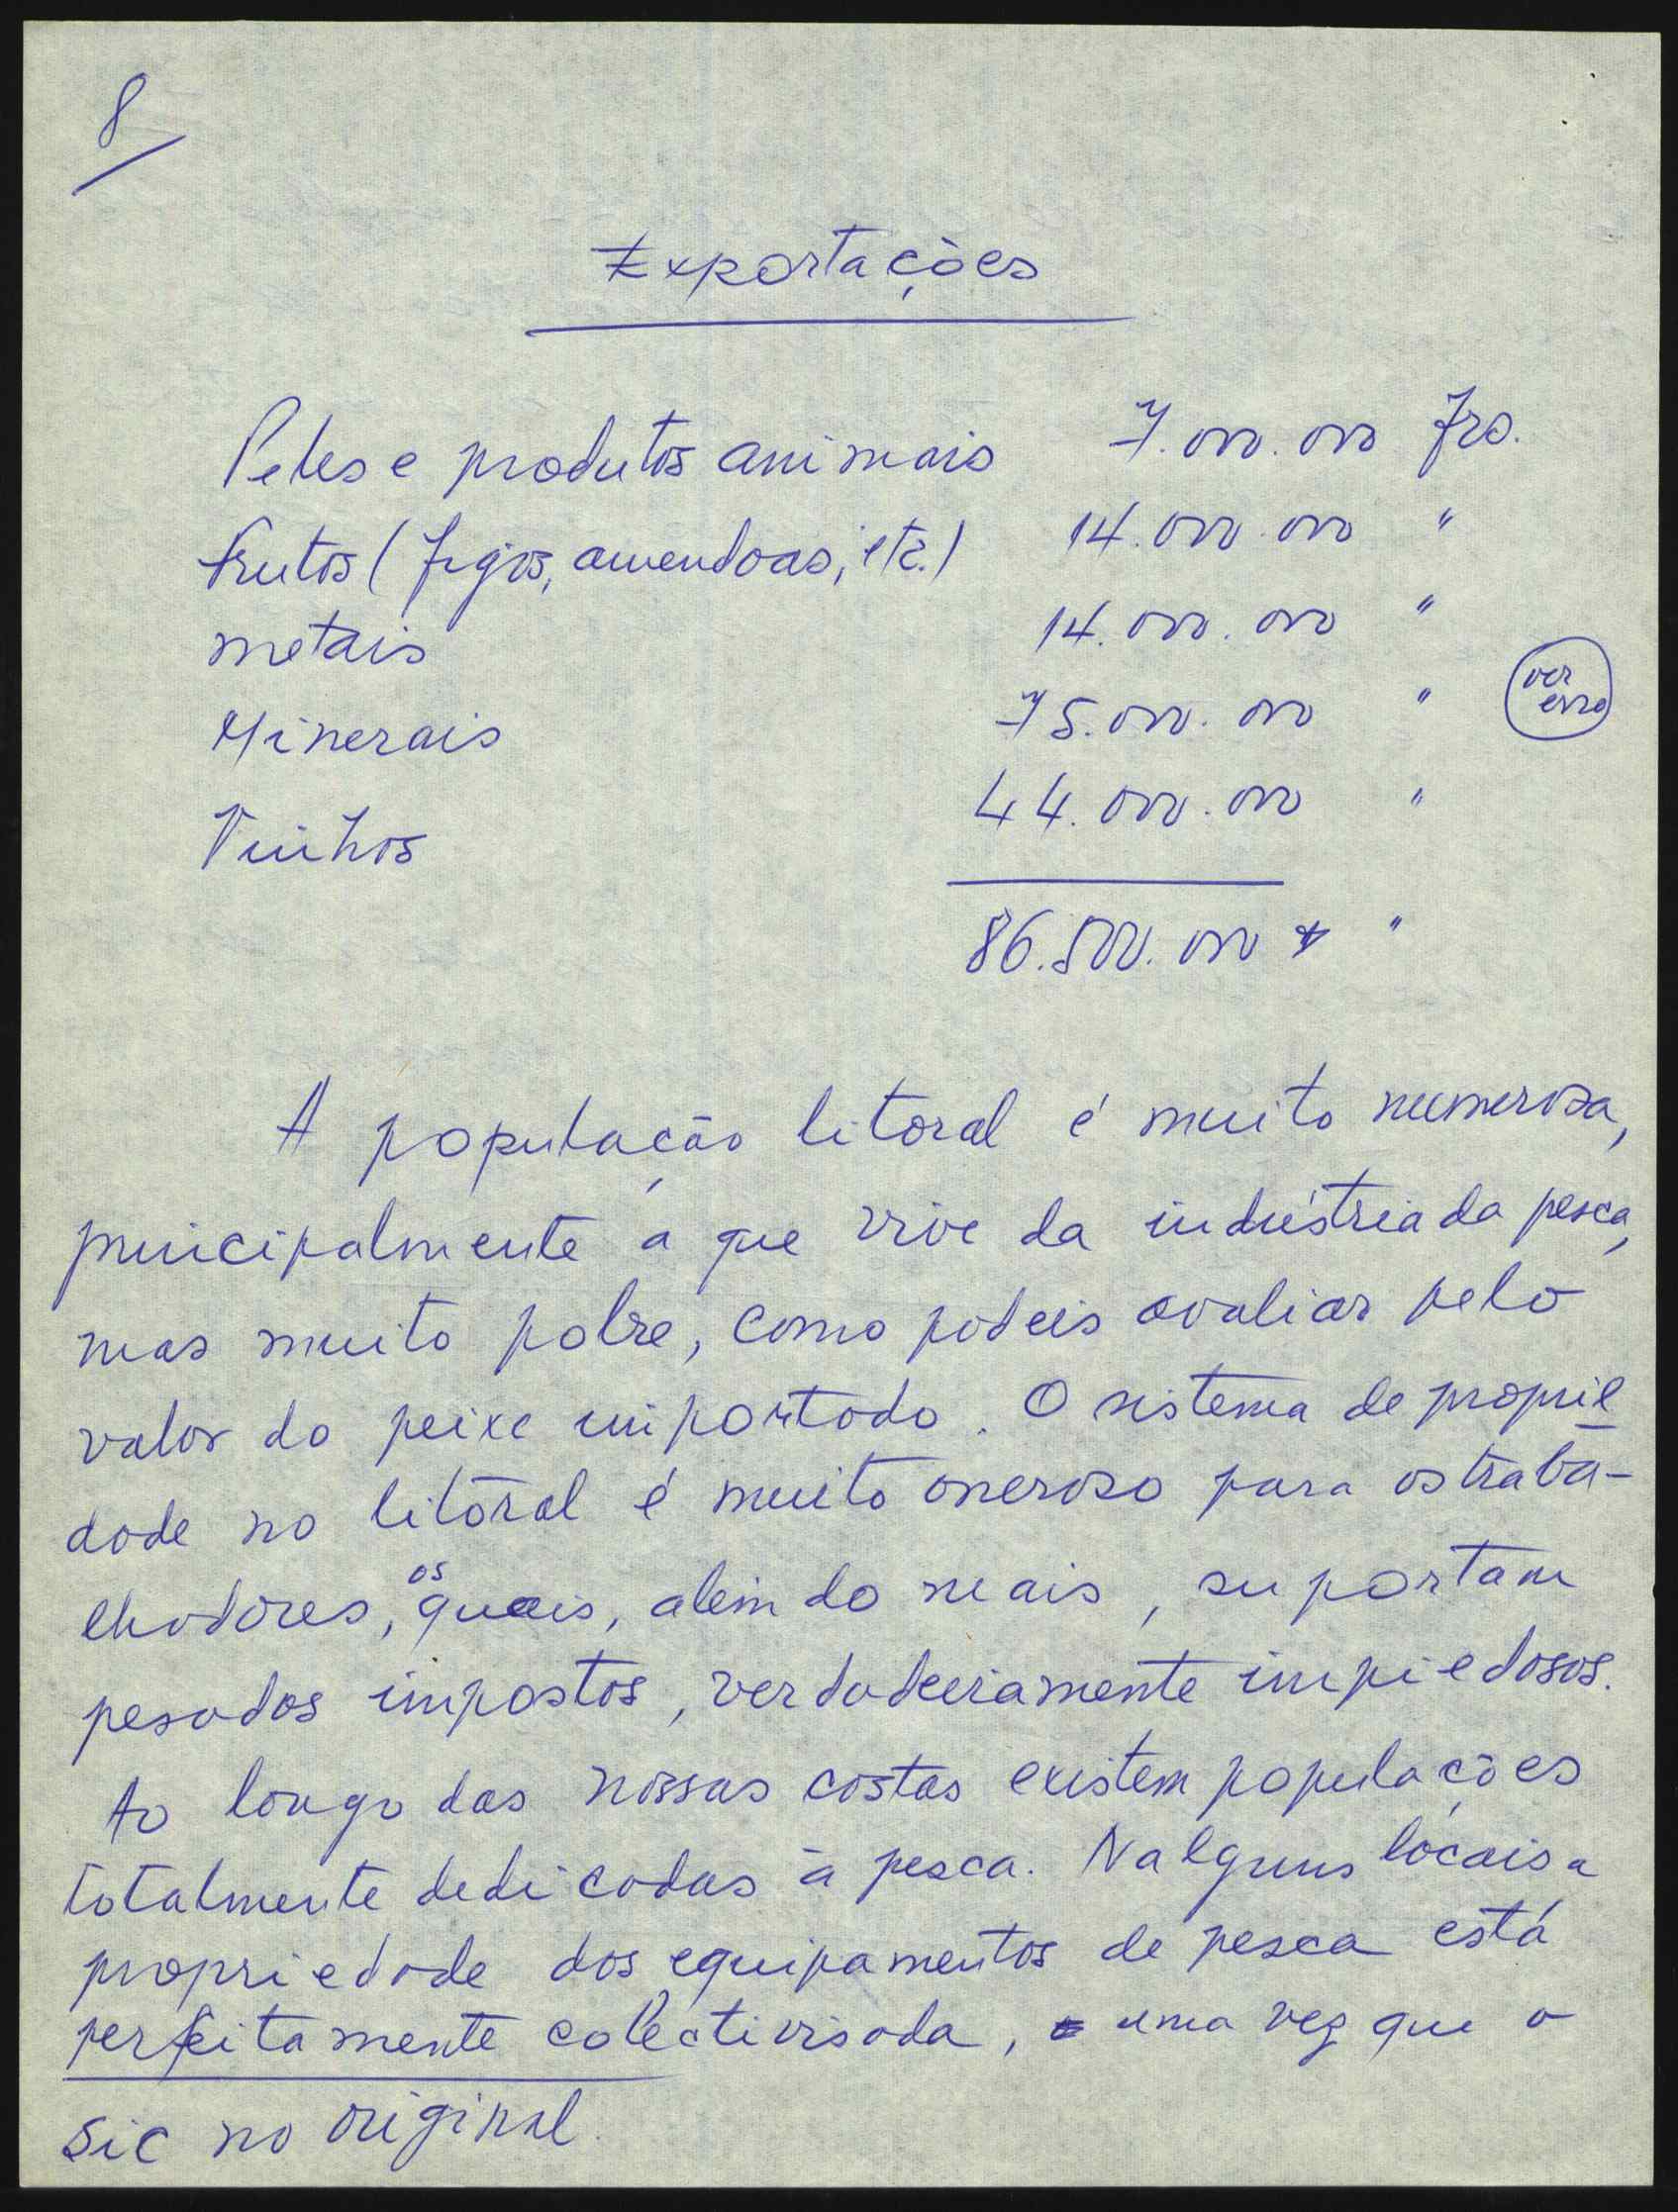 8
Exportações
Peles e produtos animais 7.000.000 frs.
Frutos (figos, amendoas, etc.) 14.000.000 "
metais 14.000.000 "
Minerais 75.000.000 " ver erro
Vinhos 44.000.000 "
86.500.000 * "
A população litoral é muito numerosa,
principalmente a que vive da indústria da pesca,
mas muito pobre, como podeis avaliar pelo
valor do peixe importado. O sistema de proprie
dade no litoral é muito oneroso para os traba-
lhadores, os quais, além do mais, suportam
pesados impostos, verdadeiramente impiedosos.
Ao longo das nossas costas existem populações
totalmente dedicadas à pesca. Nalguns locais a
propriedade dos equipamentos de pesca está
perfeitamente colectivisada, uma vez que o
Sic no original.